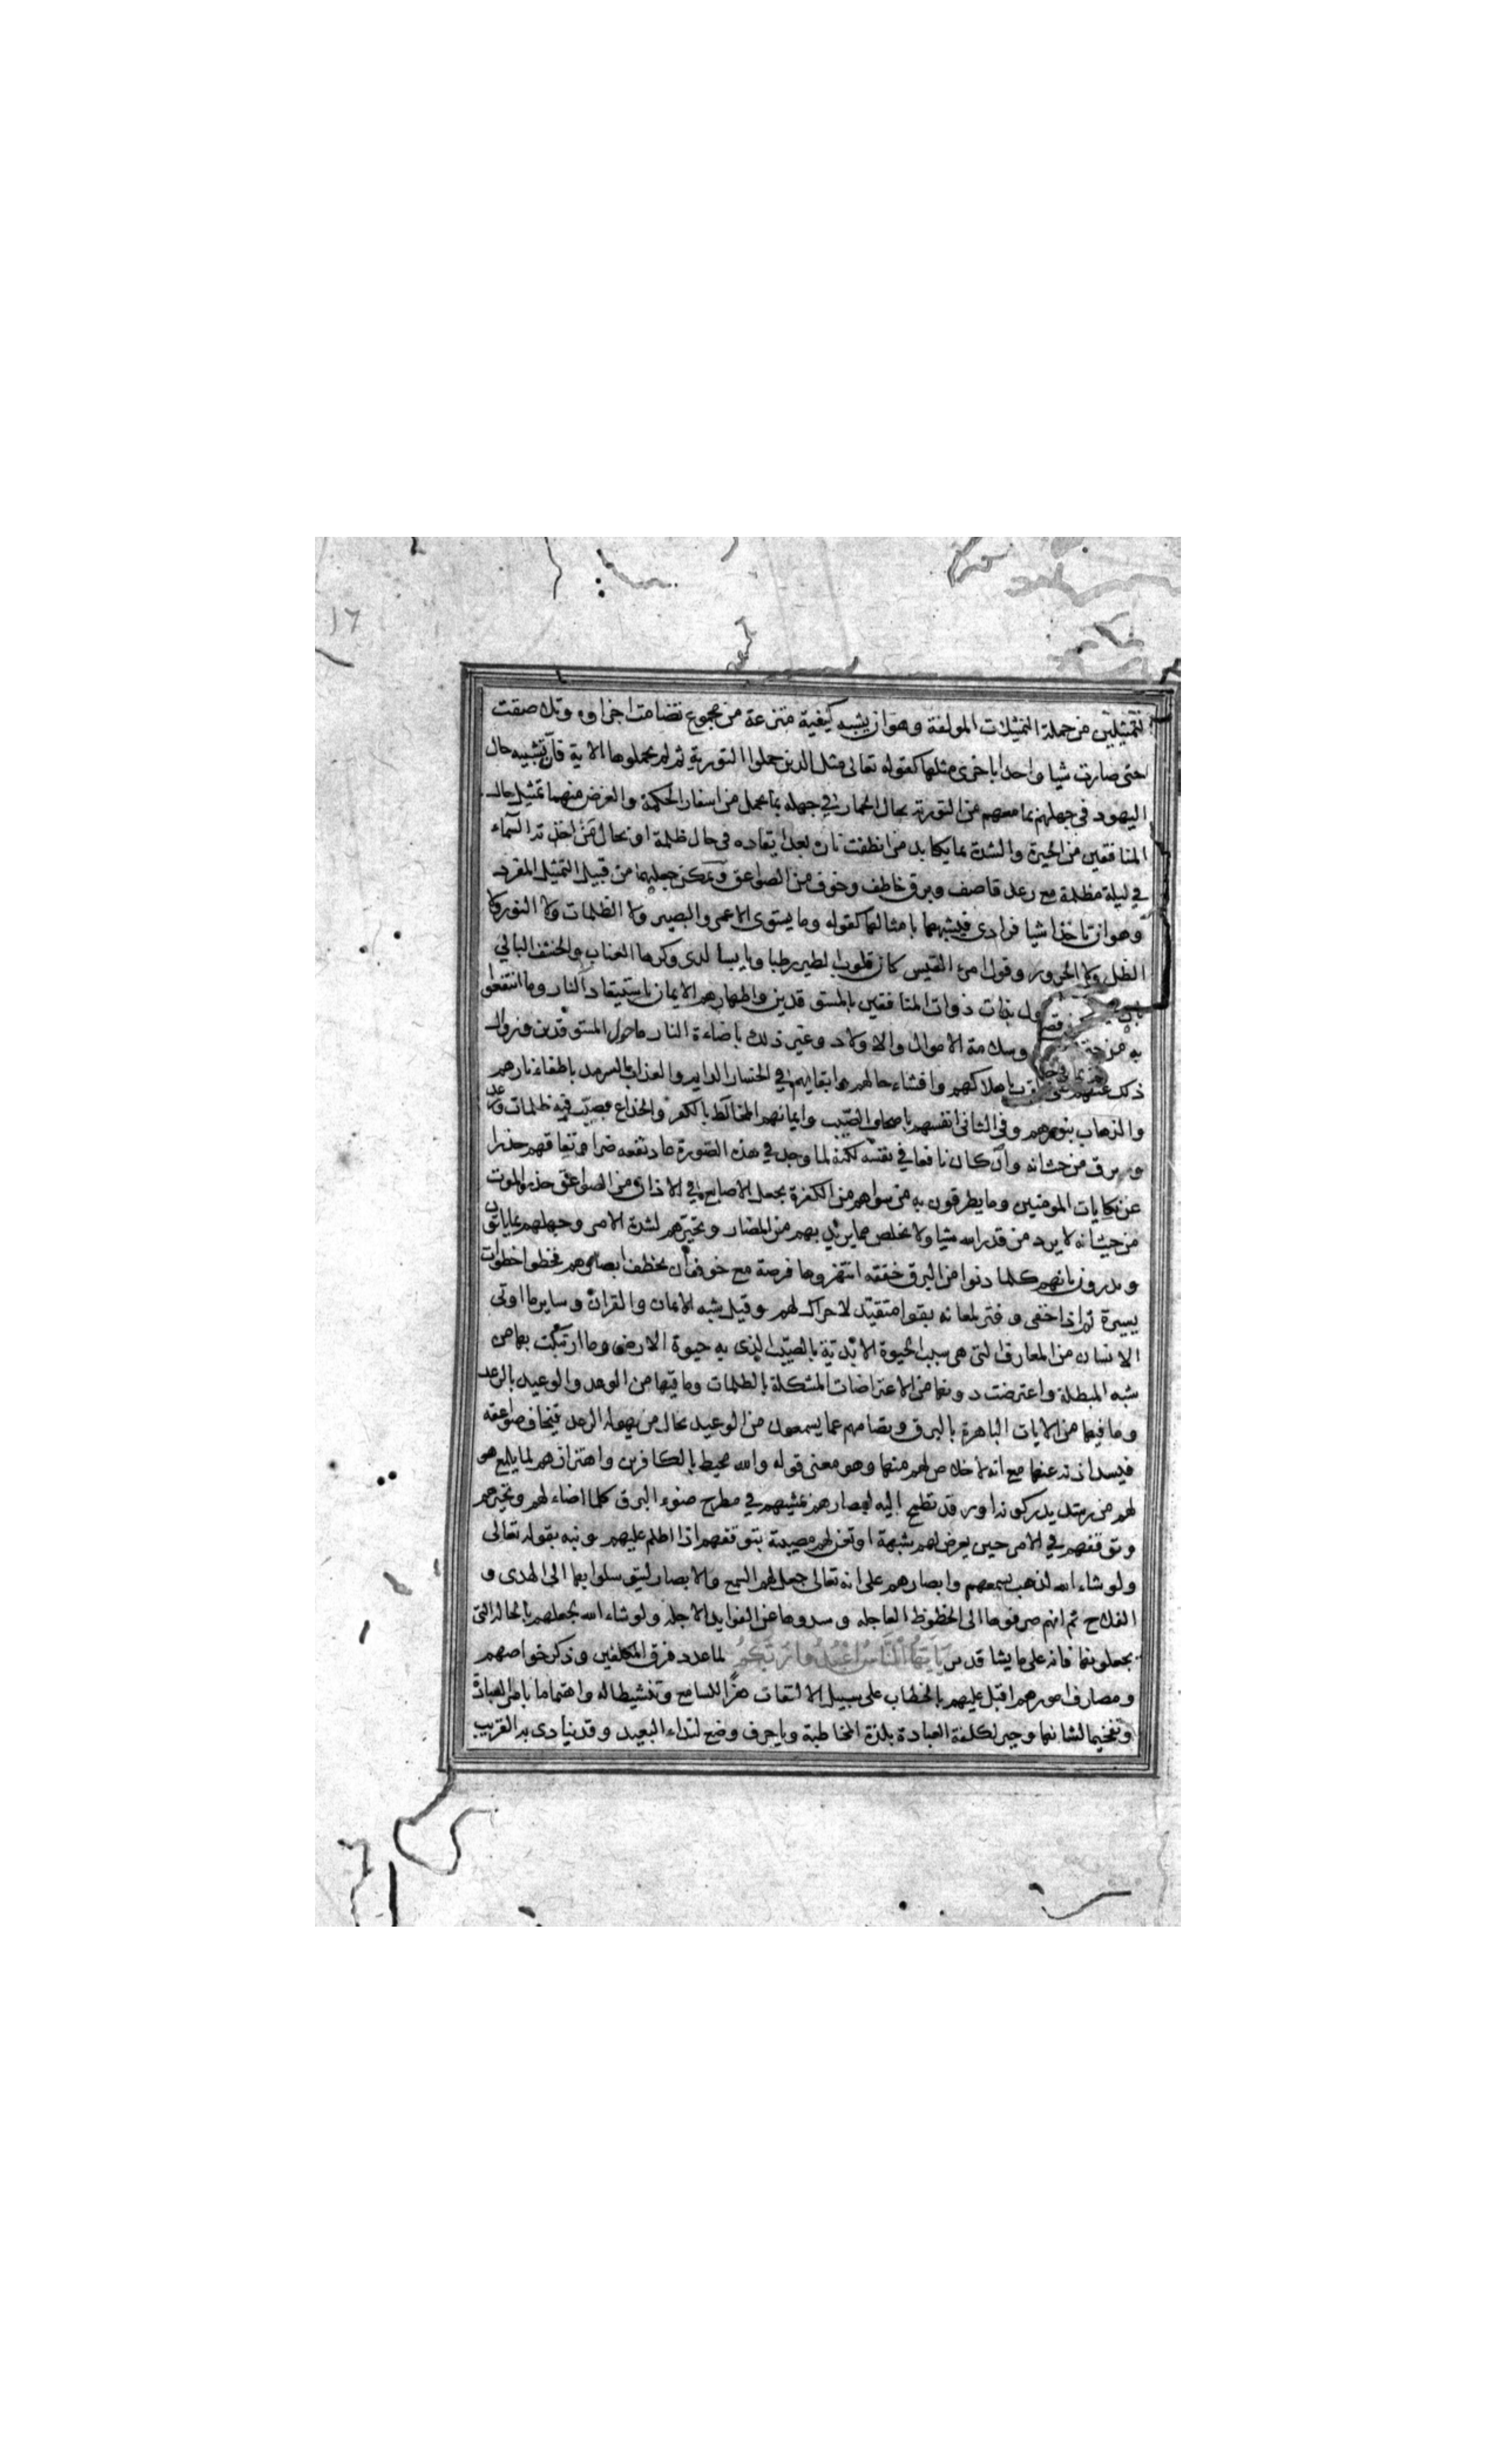 ١٦
التمثيلين من جملة التمثيلات المولفة وهو ان يشبه كيفية منتزعة من مجموع تضامت اجزاوه وتلاصقت
حتى صارت شيا واحدا باخرى مثلها كقوله تعالى مثل الذين حملوا التورية ثم لم يحملوها الاية فان تشبيه حال
اليهود في جهلهم بما معهم من التورية بحال الحمار في جهله بما يحمل من اسفار الحكمة والغرض منهما تمثيل حال
المنافقين من الحيرة والشدة بما يكابد من انطفت ناره بعد ايقاده في حال ظلمة او بحال من اخذته السماء
في ليلة مظلمة مع رعد قاصف وبرق خاطف وخوف من الصواعق ويمكن جعلهما من قبيل التمثيل المفرد
وهو ان تاخذ اشيا فرادى فيشبهها بامثالها كقوله وما يستوى الاعمى والبصير ولا الظلمات ولا النور ولا
الظل ولا الحرور وقول امرء القيس كان قلوب الطير رطبا ويابسا لدى وكرها العناب والحشف البالي
بذوات المنافقين بالمستوقدين واظهارهم الايمان باستيقاد النار وما انتفعوا
به من وسلامة الاموال والاولاد وغير ذلك باضاءة النار ما حول المستوقدين وزوال
ذلك عنهم على باهلاكهم وافشاء حالهم وابقايهم في الخسار الدايم والعذاب السرمد باطفاء نارهم
والذهاب بنورهم وفي الثاني انفسهم باصحاب الصيب وايمانهم المخالط بالكفر والخداع بصيب فيه ظلمات ورعد
وبرق من حيث انه وان كان نافعا في نفسه لكنه لما وجد في هذه الصورة عاد نفعه ضرا ونفاقهم حذرا
عن نكايات المومنين وما يطرقون به من سواهم من الكفرة بجعل الاصابع في الاذان من الصواعق حذر الموت
من حيث انه لا يرد من قدر الله شيا ولا يخلص مما يريد بهم من المضار وتحيرهم لشدة الامر وجهلهم بما ياتون
ويذرون بانهم كلما دنوا من البرق خفقه انتهزوها فرصة مع خوف ان يخطف ابصارهم فخطوا خطوات
يسيرة ثم اذا خفى وفتر لمعانه بقوا متقيد لا حراك لهم وقيل شبه الايمان والقران وساير ما اوتى
الانسان من المعارف التي هي سبب الحيوة الابدية بالصيب الذي به حيوة الارض وما ارتبكت بها من
شبه المبطلة واعترضت دونها من الاعتراضات المشكلة بالظلمات وما فيها من الوعد والوعيد بالرعد
وما فيها من الايات الباهرة بالبرق وتصامهم عما يسمعون من الوعيد بحال من يهوله الرعد فيخاف صواعقه
فيسد اذنه عنها مع انه لا خلاص لهم منها وهو معنى قوله والله محيط بالكافرين واهتزازهم لما يلمع
لهم من رشد يدركونه او رفد تطمح اليه ابصارهم بمشيهم في مطرح ضوء البرق كلما اضاء لهم وتحيرهم
وتوقفهم في الامر حين يعرض لهم شبهة او تعن لهم مصيبة بتوقفهم اذا اظلم عليهم ونبه بقوله تعالى
ولو شاء الله لذهب بسمعهم وابصارهم على انه تعالى جعل لهم السمع والابصار ليتوسلوا بها الى الهدى و
الفلاح ثم انهم صرفوها الى الحظوظ العاجله وسدوها عن الفوايد الاجله ولو شاء الله لجعلهم بالحاله التي
يجعلونها فانه على ما يشا قدير يايها الناس اعبدوا ربكم لما عدد فرق المكلفين وذكر خواصهم
ومصارف امورهم اقبل عليهم بالخطاب على سبيل الالتفات هزا للسامع وتنشيطا له واهتماما بامر العبادة
وتفخيما لشانها وجبر لكلفة العبادة بلذة المخاطبة ويا حرف وضع لنداء البعيد وقد ينادى به القريب